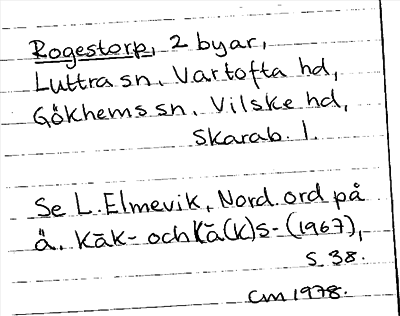 Rogestorp, 2 byar,
Luttra sn, Vartofta hd,
Gökhems sn, Vilske hd,
Skarab. l.
Se L. Elmevik, Nord. ord på
ä. kāk- och kā(k)s- (1967),
s. 38.
CM 1978.